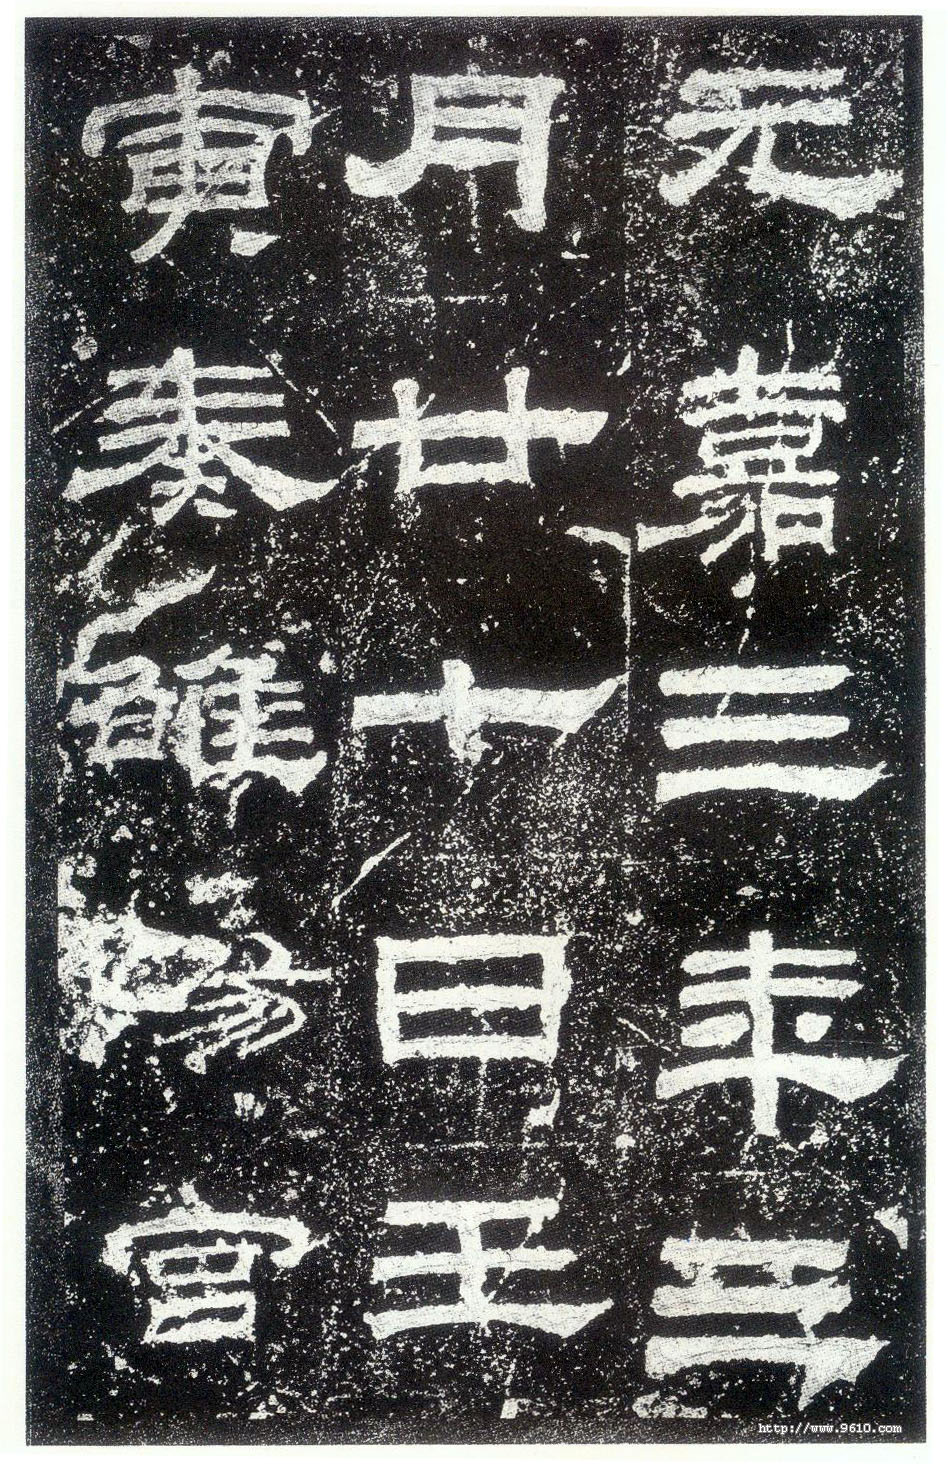 元嘉三年三
月廿七日壬
寅奏雒陽宮
http://www.9610.com